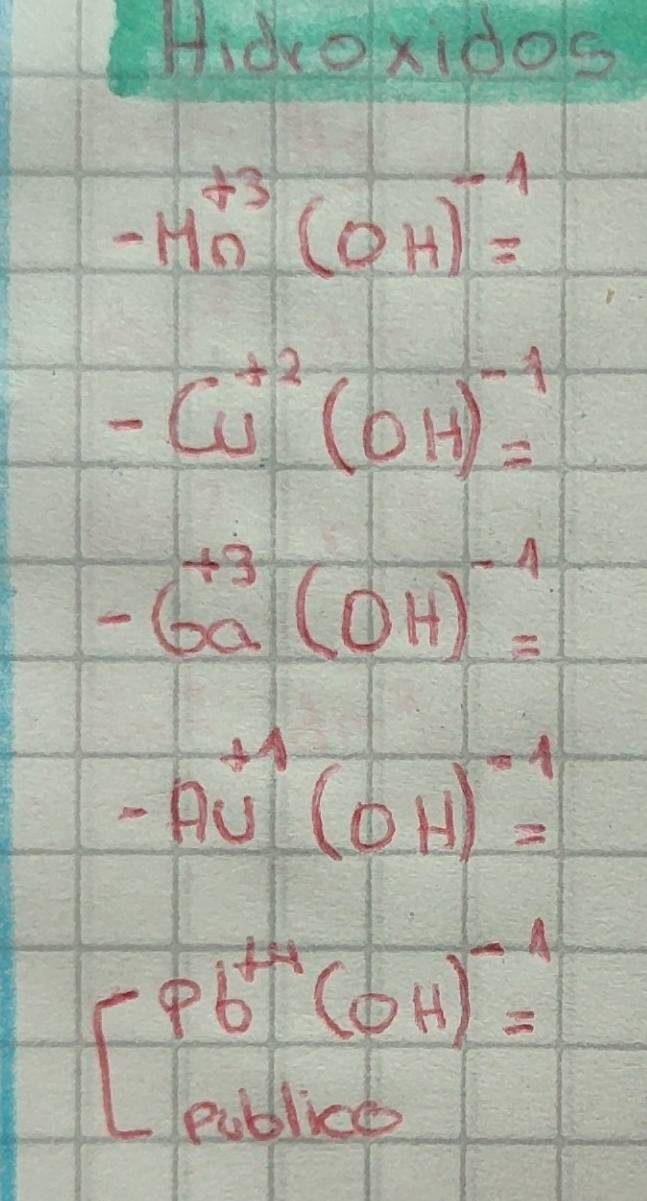 Hidroxidos
-Mn⁺³ (OH)⁻¹ =
-Cu⁺² (OH)⁻¹ =
-Ga⁺³ (OH)⁻¹ =
-Au⁺¹ (OH)⁻¹ =
Pb⁺⁴ (OH)⁻¹ =
publico